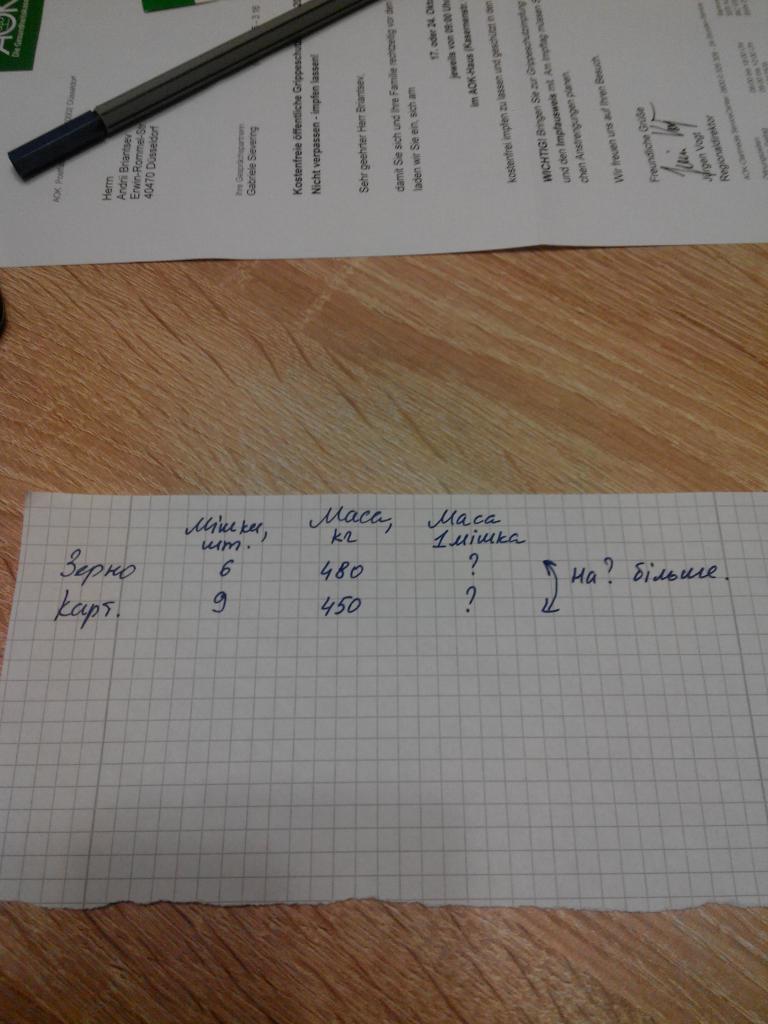 AOK
Die Gesundheitskasse
Herrn
Andrii Briantsev
40470 Düsseldorf
Ihre Gesprächspartnerin
Gabriele Sievering
Kostenfreie öffentliche Grippeschutz
Nicht verpassen - impfen lassen!
Sehr geehrter Herr Briantsev,
damit Sie sich und Ihre Familie rechtzeitig vor der
laden wir Sie ein, sich am
17. oder 24. Okt
jeweils von 09:00 Uhr
im AOK-Haus (Kasernenstr.
kostenfrei impfen zu lassen und geschützt in den
WICHTIG! Bringen Sie zur Grippeschutzimpfung
und den Impfausweis mit. Am Impftag müssen S
chen Anstrengungen planen.
Wir freuen uns auf Ihren Besuch.
Freundliche Grüße
Jürgen Vogt
Regionaldirektor
Мішки, шт. Маса, кг Маса 1 мішка
Зерно 6 480 ? на? більше.
Карт. 9 450 ?